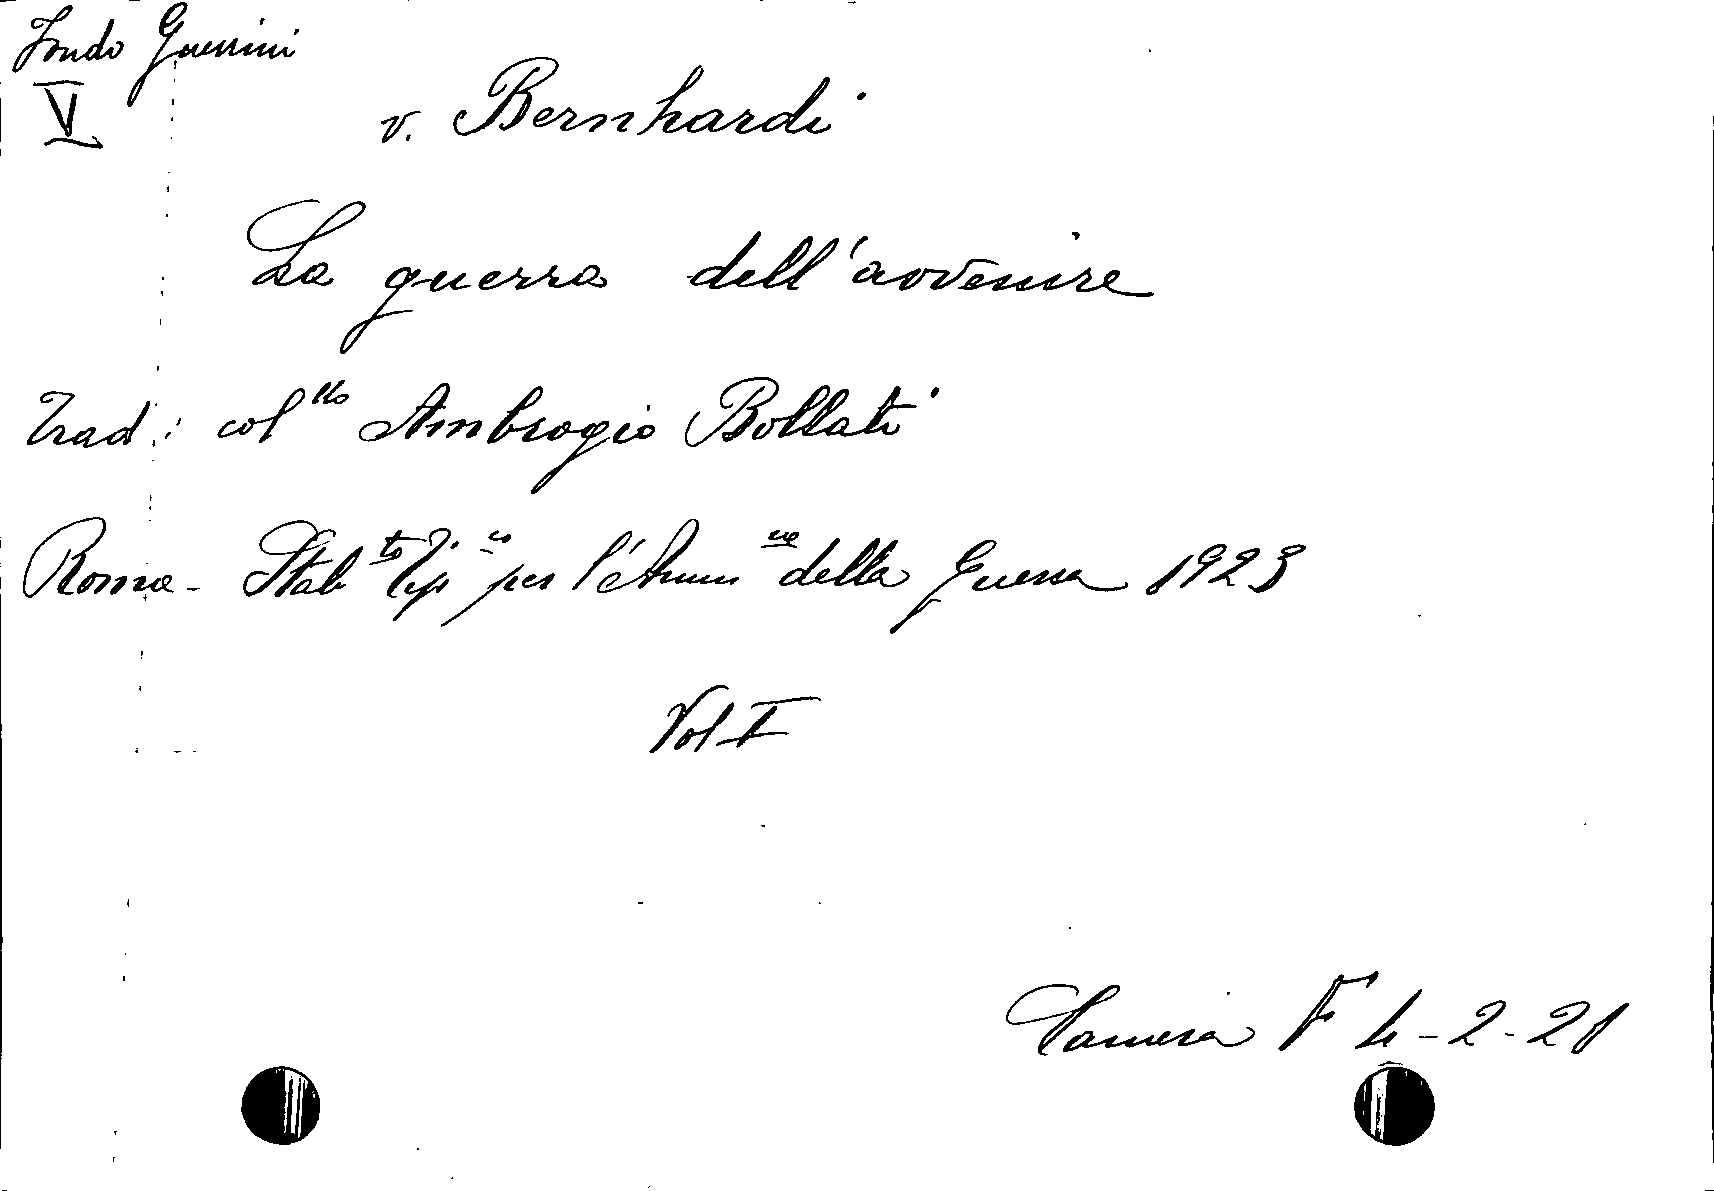 Fondo Guerrini
V
v. Bernhardi
La guerra dell'avvenire
Trad: col.llo Ambrogio Bollati
Roma - Stab.to Tip.co per l'Amm.ne della Guerra 1923
Vol I
Camera F 4-2-21